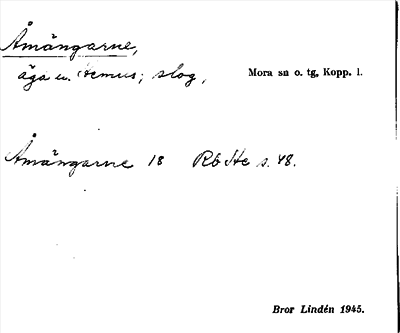 Åmängarne,
äga u. Hemus; slog, Mora sn o. tg, Kopp. l.
Åmängarne 18 Rb He s. 48.
Bror Lindén 1945.